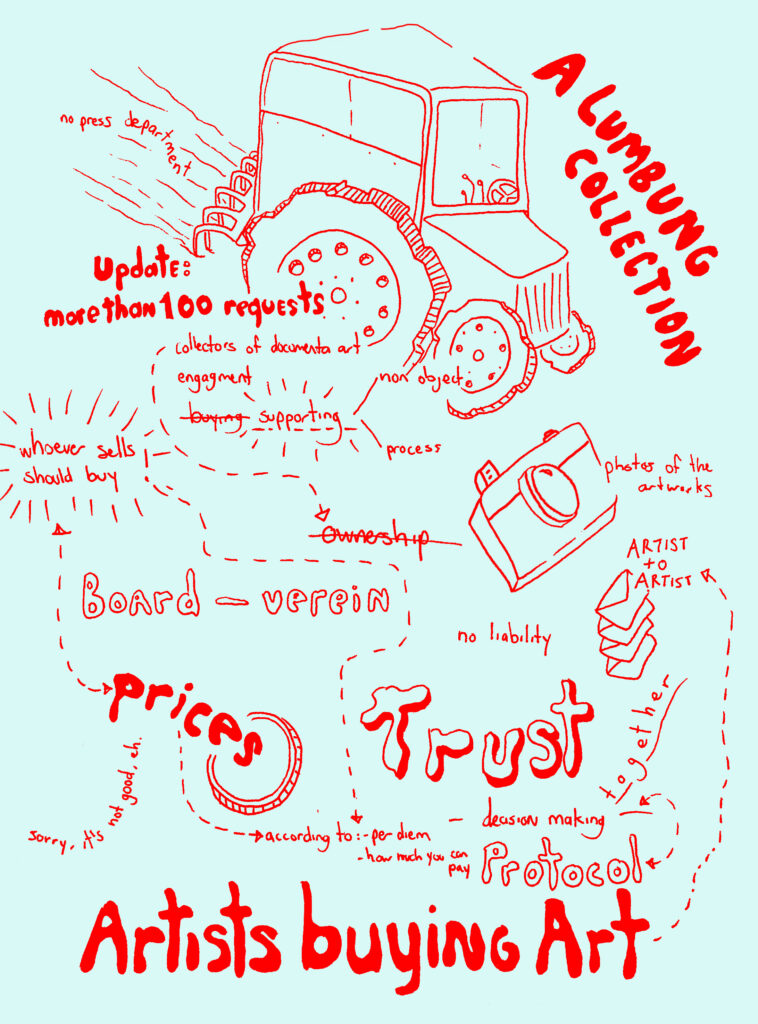 A LUMBUNG
COLLECTION
no press department
Update:
more than 100 requests
collectors of documenta art
engagment
non object
buying supporting
process
whoever sells
should buy
photos of the
artworks
ownership
ARTIST
to
ARTIST
Board – verein
no liability
prices
Trust
together
sorry, it's not good, eh.
according to: - per diem
- how much you can
pay
– decision making
Protocol
Artists buying Art